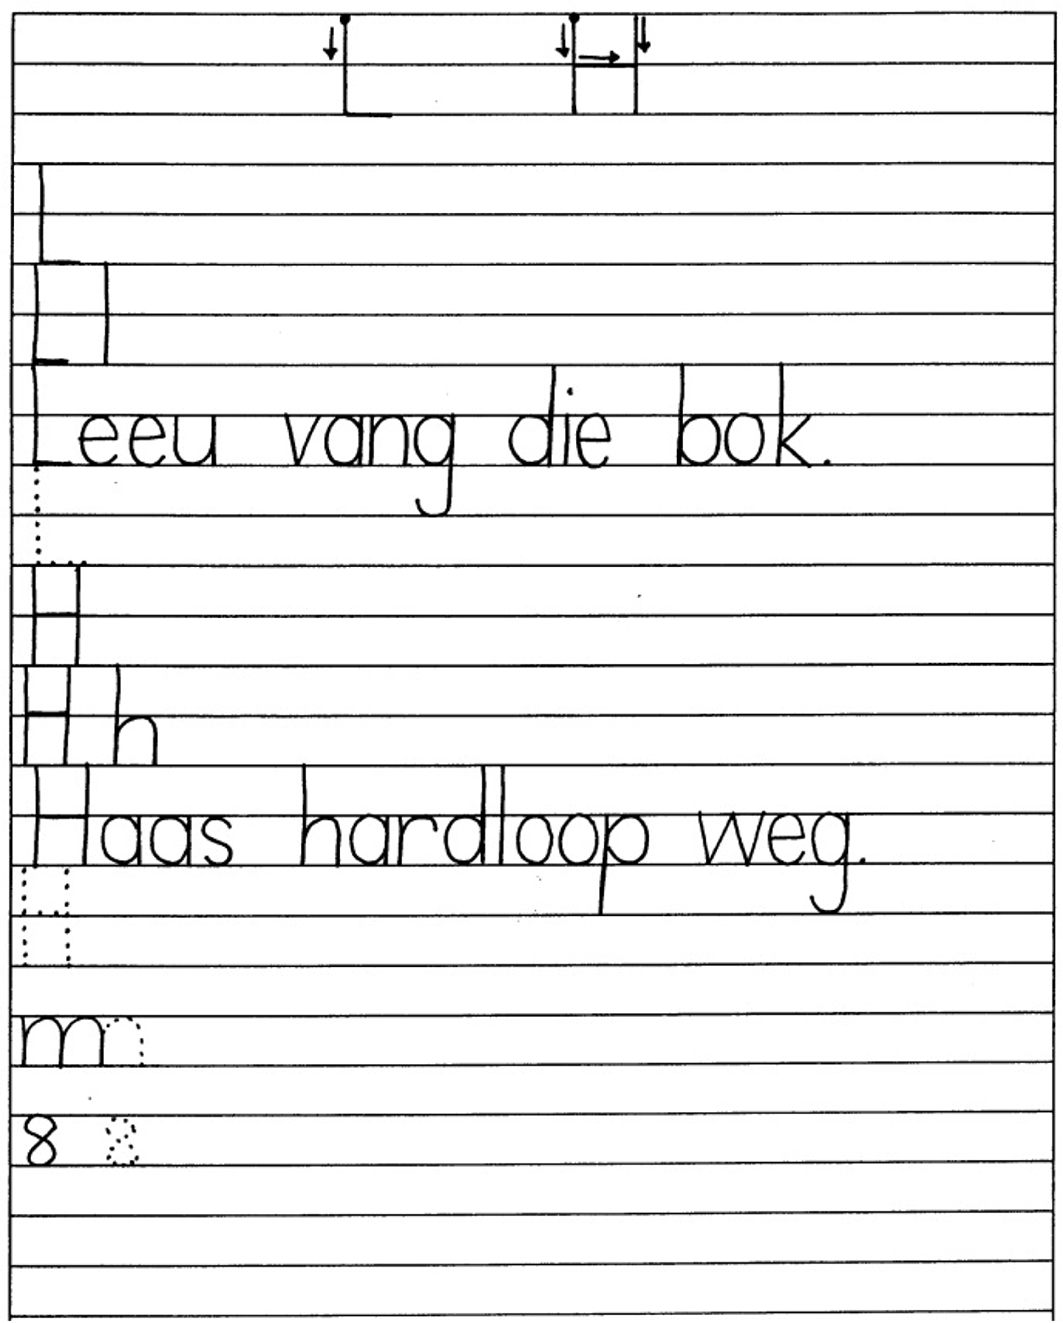 L H
L
L l
Leeu vang die bok.
L
H
H h
Haas hardloop weg.
H
m n
8 8